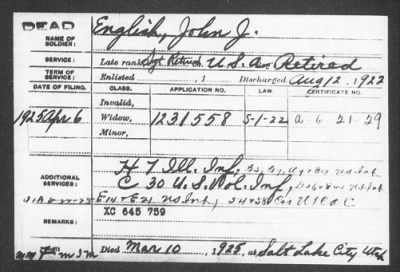 DEAD
NAME OF SOLDIER: English, John J.
SERVICE: Late rank Sgt Retired, U.S.A. Retired
TERM OF SERVICE: Enlisted , 1 Discharged Aug 12, 1922
DATE OF FILING. CLASS. APPLICATION NO. LAW. CERTIFICATE NO.
Invalid,
1925 Apr 6 Widow, 1231558 5-1-22 a-6-21-29
Minor,
H 7 Ill. Inf.
ADDITIONAL SERVICES: C 30 U.S. Vol. Inf.
REMARKS: XC 645 759
Died Mar 10, 1925, at Salt Lake City Utah